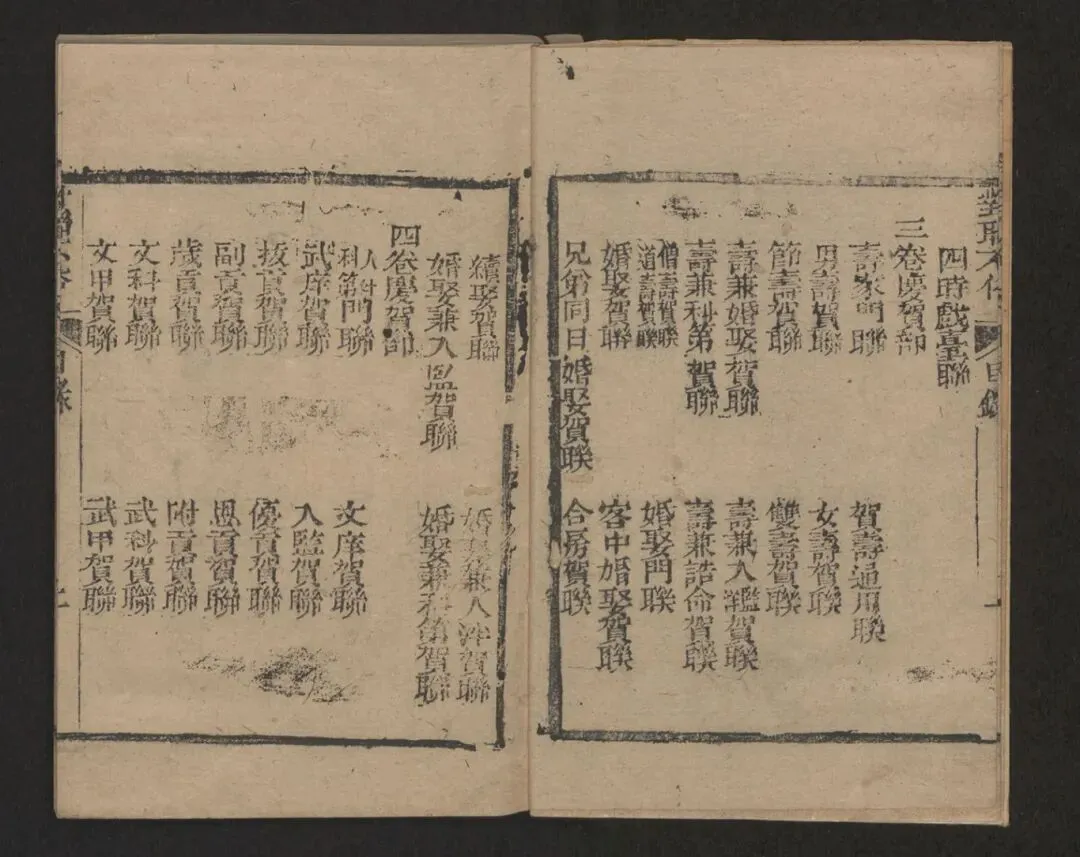 對聯不 目錄 一
四時戲臺聯
三卷慶賀部
壽家門聯 賀壽通用聯
男壽賀聯 女壽賀聯
節壽賀聯 雙壽賀聯
壽兼婚娶賀聯 壽兼入鑑賀聯
壽兼科第賀聯 壽兼誥命賀聯
僧壽賀聯
道壽賀聯
婚娶門聯
婚娶賀聯 客中婚娶賀聯
兄弟同日婚娶賀聯 合房賀聯
續娶賀聯 婚娶兼入泮賀聯
婚娶兼入監賀聯 婚娶兼科第賀聯
四卷慶賀部
入泮門聯
科第門聯
文庠賀聯
武庠賀聯 入監賀聯
拔貢賀聯 優貢賀聯
副貢賀聯 恩貢賀聯
歲貢賀聯 附貢賀聯
文科賀聯 武科賀聯
文甲賀聯 武甲賀聯
目錄